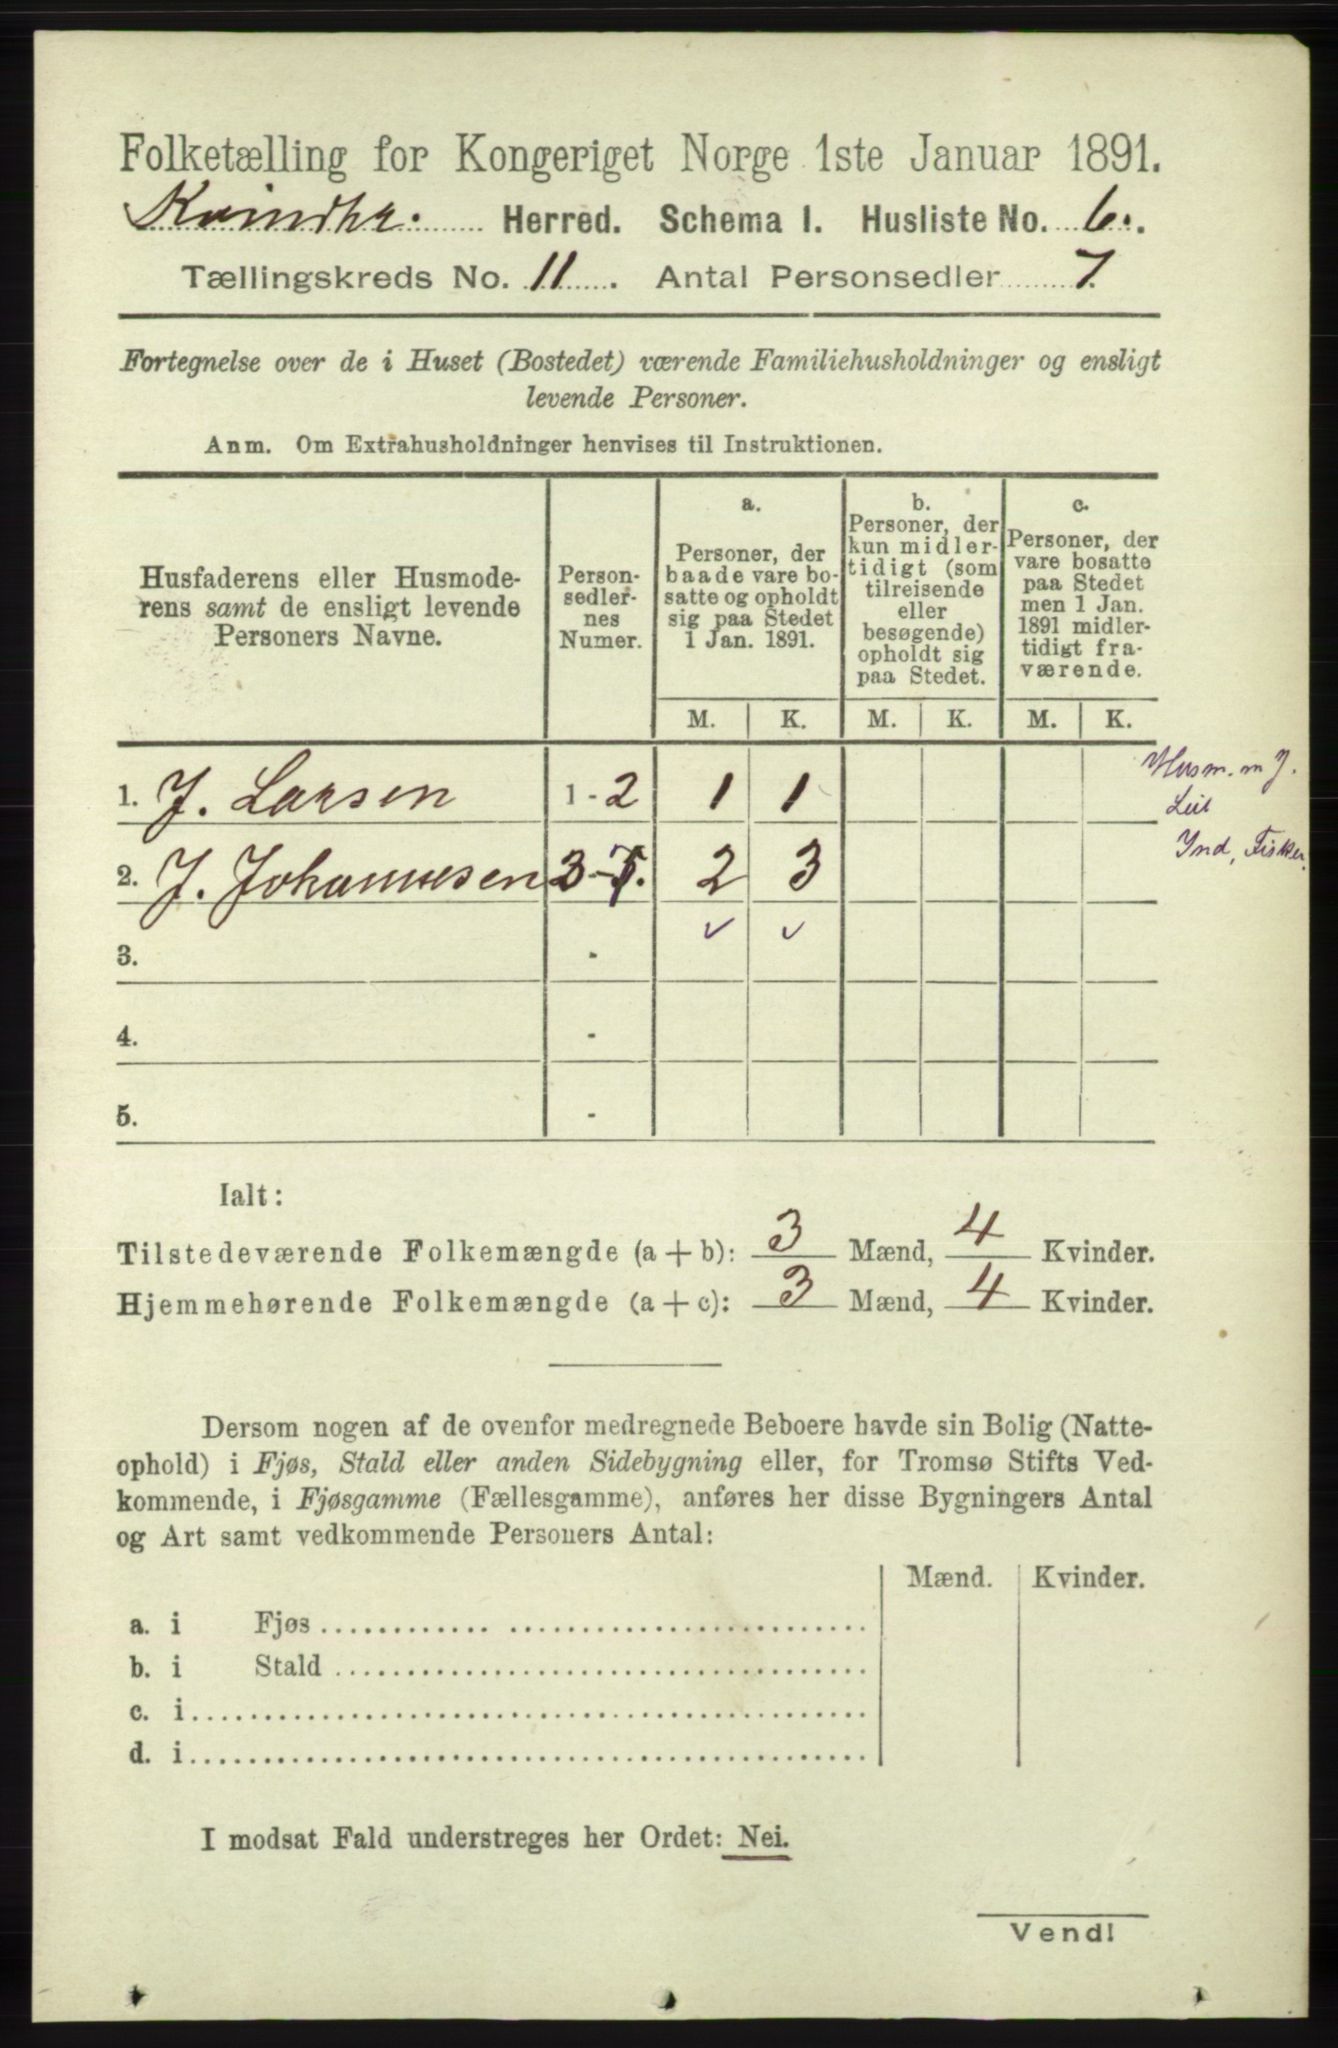 Folketælling for Kongeriget Norge 1ste Januar 1891.
Kvindhr. Herred. Schema I. Husliste No. 6.
Tællingskreds No. 11. Antal Personsedler 7.
Fortegnelse over de i Huset (Bostedet) værende Familiehusholdninger og ensligt
levende Personer.
Anm. Om Extrahusholdninger henvises til Instruktionen.
Husfaderens eller Husmode-
rens samt de ensligt levende
Personers Navne.
Person-
sedler-
nes
Numer.
a.
Personer, der
baade vare bo-
satte og opholdt
sig paa Stedet
1 Jan. 1891.
b.
Personer, der
kun midler-
tidigt (som
tilreisende
eller
besøgende)
opholdt sig
paa Stedet.
c.
Personer, der
vare bosatte
paa Stedet
men 1 Jan.
1891 midler-
tidigt fra-
værende.
M. K. M. K. M. K.
1. J. Larsen 1 - 2 1 1 Husm. m J.
2. J. Johannesen 3-7. 2 3 Ind, Fisker.
3. - ✓ ✓
4. -
5. -
Ialt:
Tilstedeværende Folkemængde (a + b): 3 Mænd, 4 Kvinder.
Hjemmehørende Folkemængde (a + c): 3 Mænd, 4 Kvinder.
Dersom nogen af de ovenfor medregnede Beboere havde sin Bolig (Natte-
ophold) i Fjøs, Stald eller anden Sidebygning eller, for Tromsø Stifts Ved-
kommende, i Fjøsgamme (Fællesgamme), anføres her disse Bygningers Antal
og Art samt vedkommende Personers Antal:
Mænd. Kvinder.
a. i Fjøs
b. i Stald
c. i
d. i
I modsat Fald understreges her Ordet: Nei.
Vend!